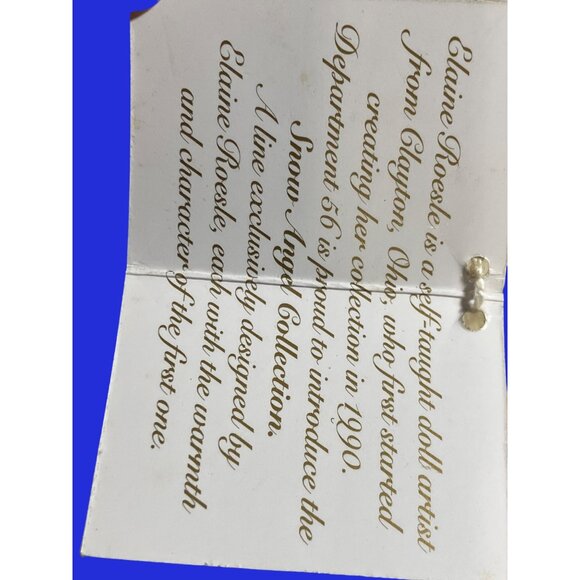 Elaine Roesle is a self-taught doll artist
from Clayton, Ohio, who first started
creating her collection in 1990.
Department 56 is proud to introduce the
Snow Angel Collection.
A line exclusively designed by
Elaine Roesle, each with the warmth
and character of the first one.